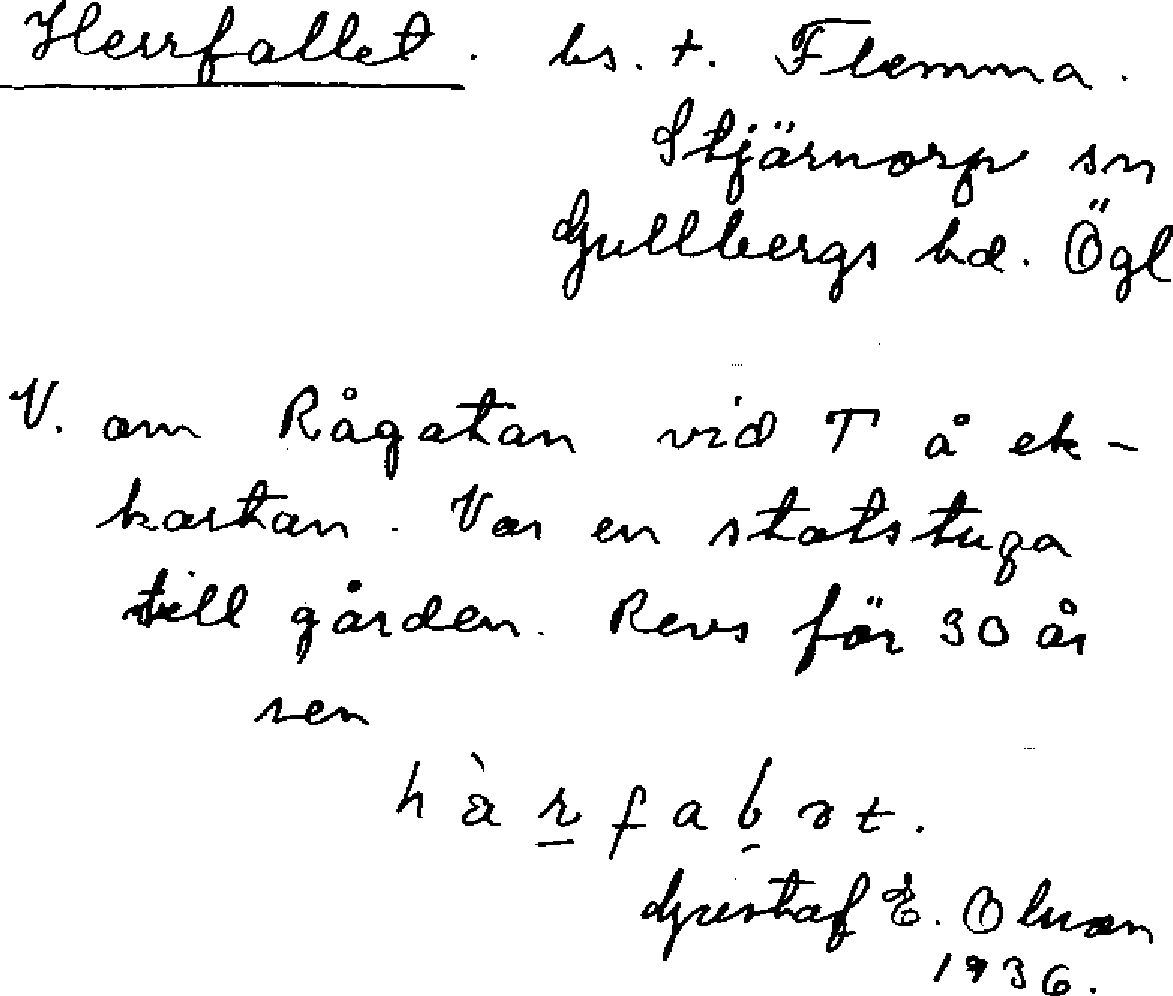 Herrfallet. bs. t. Flemma.
Stjärnorp sn
Gullbergs hd. Ögl
V. om Rågatan vid T å ek-
kartan. Var en statstuga
till gården. Revs för 30 år
sen
Gustaf E. Olsson
1936.